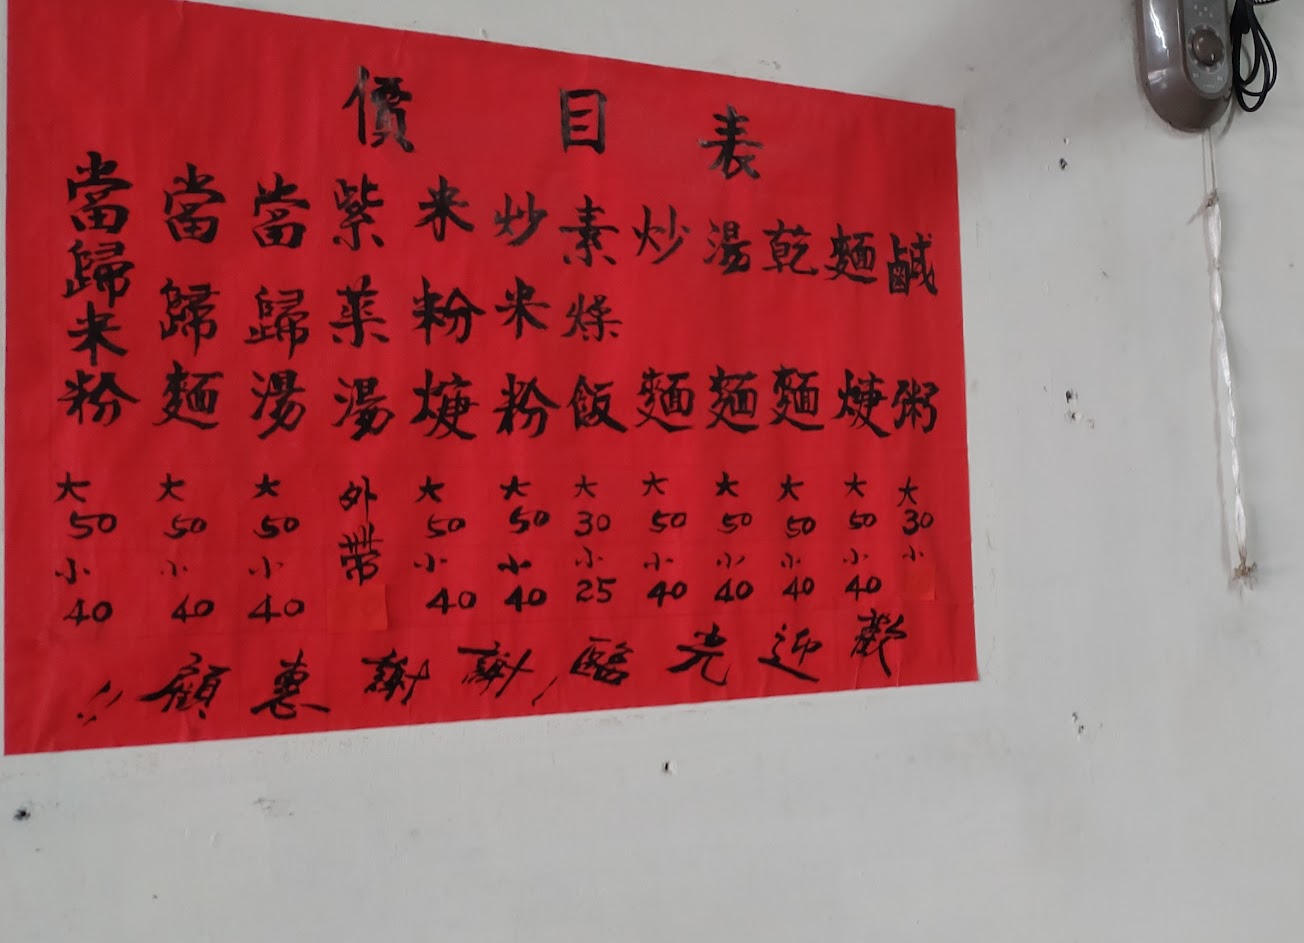 價目表
鹹粥 大30 小
麵焿 大50 小40
乾麵 大50 小40
湯麵 大50 小40
炒麵 大50 小40
素燥飯 大30 小25
炒米粉 大50 小40
米粉焿 大50 小40
紫菜湯 外帶
當歸湯 大50 小40
當歸麵 大50 小40
當歸米粉 大50 小40
歡迎光臨,謝謝惠顧!!